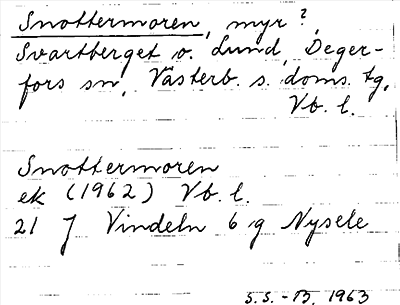 Snottermoren, myr?,
Svartberget o. Lund, Deger-
fors sn, Västerb. s. doms. tg,
Vb. l.
Snottermoren
ek (1962) Vb. l.
21 J Vindeln 6 g Nysele
S.S.-B. 1963